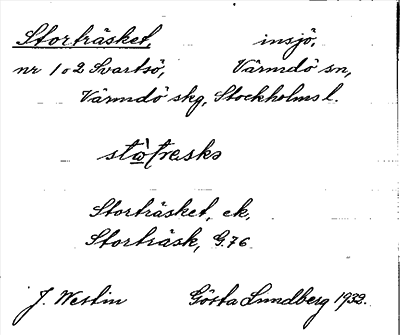 Storträsket, insjö,
nr 1 o 2 Svartsö, Värmdö sn,
Värmdö skg, Stockholms l.
Storträsket, ek.
Storträsk, G.76
J. Westin Gösta Lundberg 1932.